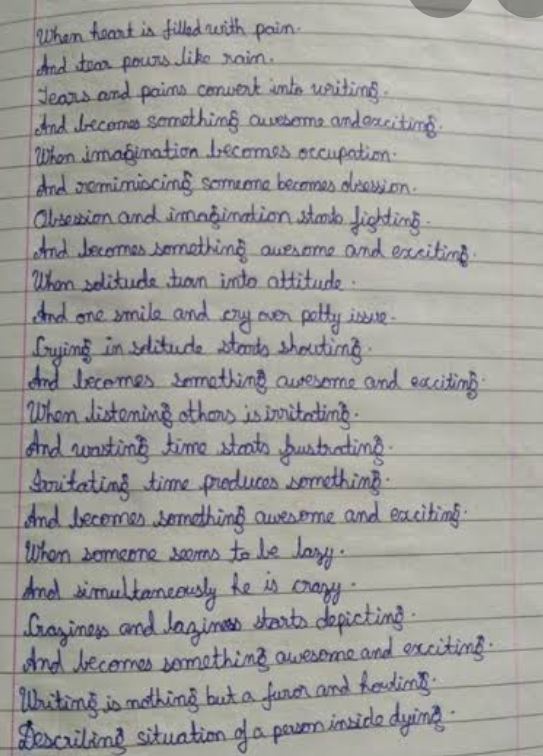 When heart is filled with pain.
And tear pours like rain.
Tears and pains convert into writing.
And becomes something awesome and exciting.
When imagination becomes occupation.
And reminiscing someone becomes obsession.
Obsession and imagination starts fighting.
And becomes something awesome and exciting.
When solitude turn into attitude.
And one smile and cry over petty issue.
Crying in solitude starts shouting.
And becomes something awesome and exciting.
When listening others is irritating.
And wasting time starts frustrating.
Irritating time produces something.
And becomes something awesome and exciting.
When someone seems to be lazy.
And simultaneously he is crazy.
Craziness and laziness starts depicting.
And becomes something awesome and exciting.
Writing is nothing but a furor and howling.
Describing situation of a person inside dying.